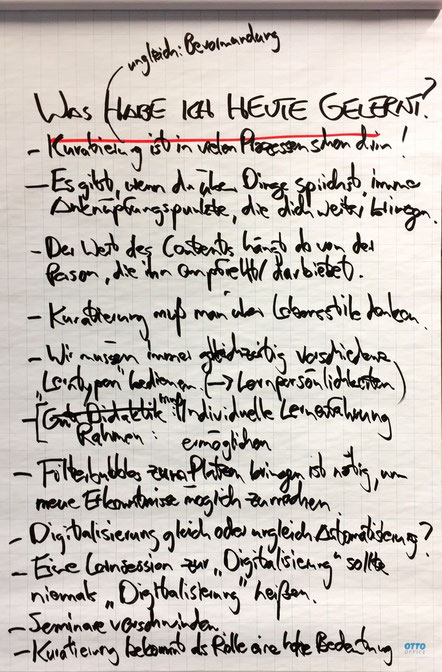 ungleich: Bevormundung
WAS HABE ICH HEUTE GELERNT?
- Kuratierung ist in vielen Prozessen schon drin!
- Es gibt, wenn du über Dinge sprichst, immer
Anknüpfungspunkte, die dich weiter bringen.
- Der Wert des Contents hängt ab von der
Person, die ihn empfiehlt/darbietet.
- Kuratierung muß man über Lebensstile denken.
- Wir müssen immer gleichzeitig verschiedene
"Lerntypen" bedienen (→ Lernpersönlichkeiten)
- [Gute Didaktik muß Individuelle Lernerfahrung
Rahmen: ermöglichen
- Filterbubbles zum Platzen bringen ist nötig, um
neue Erkenntnisse möglich zu machen.
- Digitalisierung gleich oder ungleich Automatisierung?
- Eine Lernsession zur „Digitalisierung" sollte
niemals „Digitalisierung" heißen.
- Seminare verschwinden.
- Kuratierung bekommt als Rolle eine hohe Bedeutung
OTTO
OFFICE